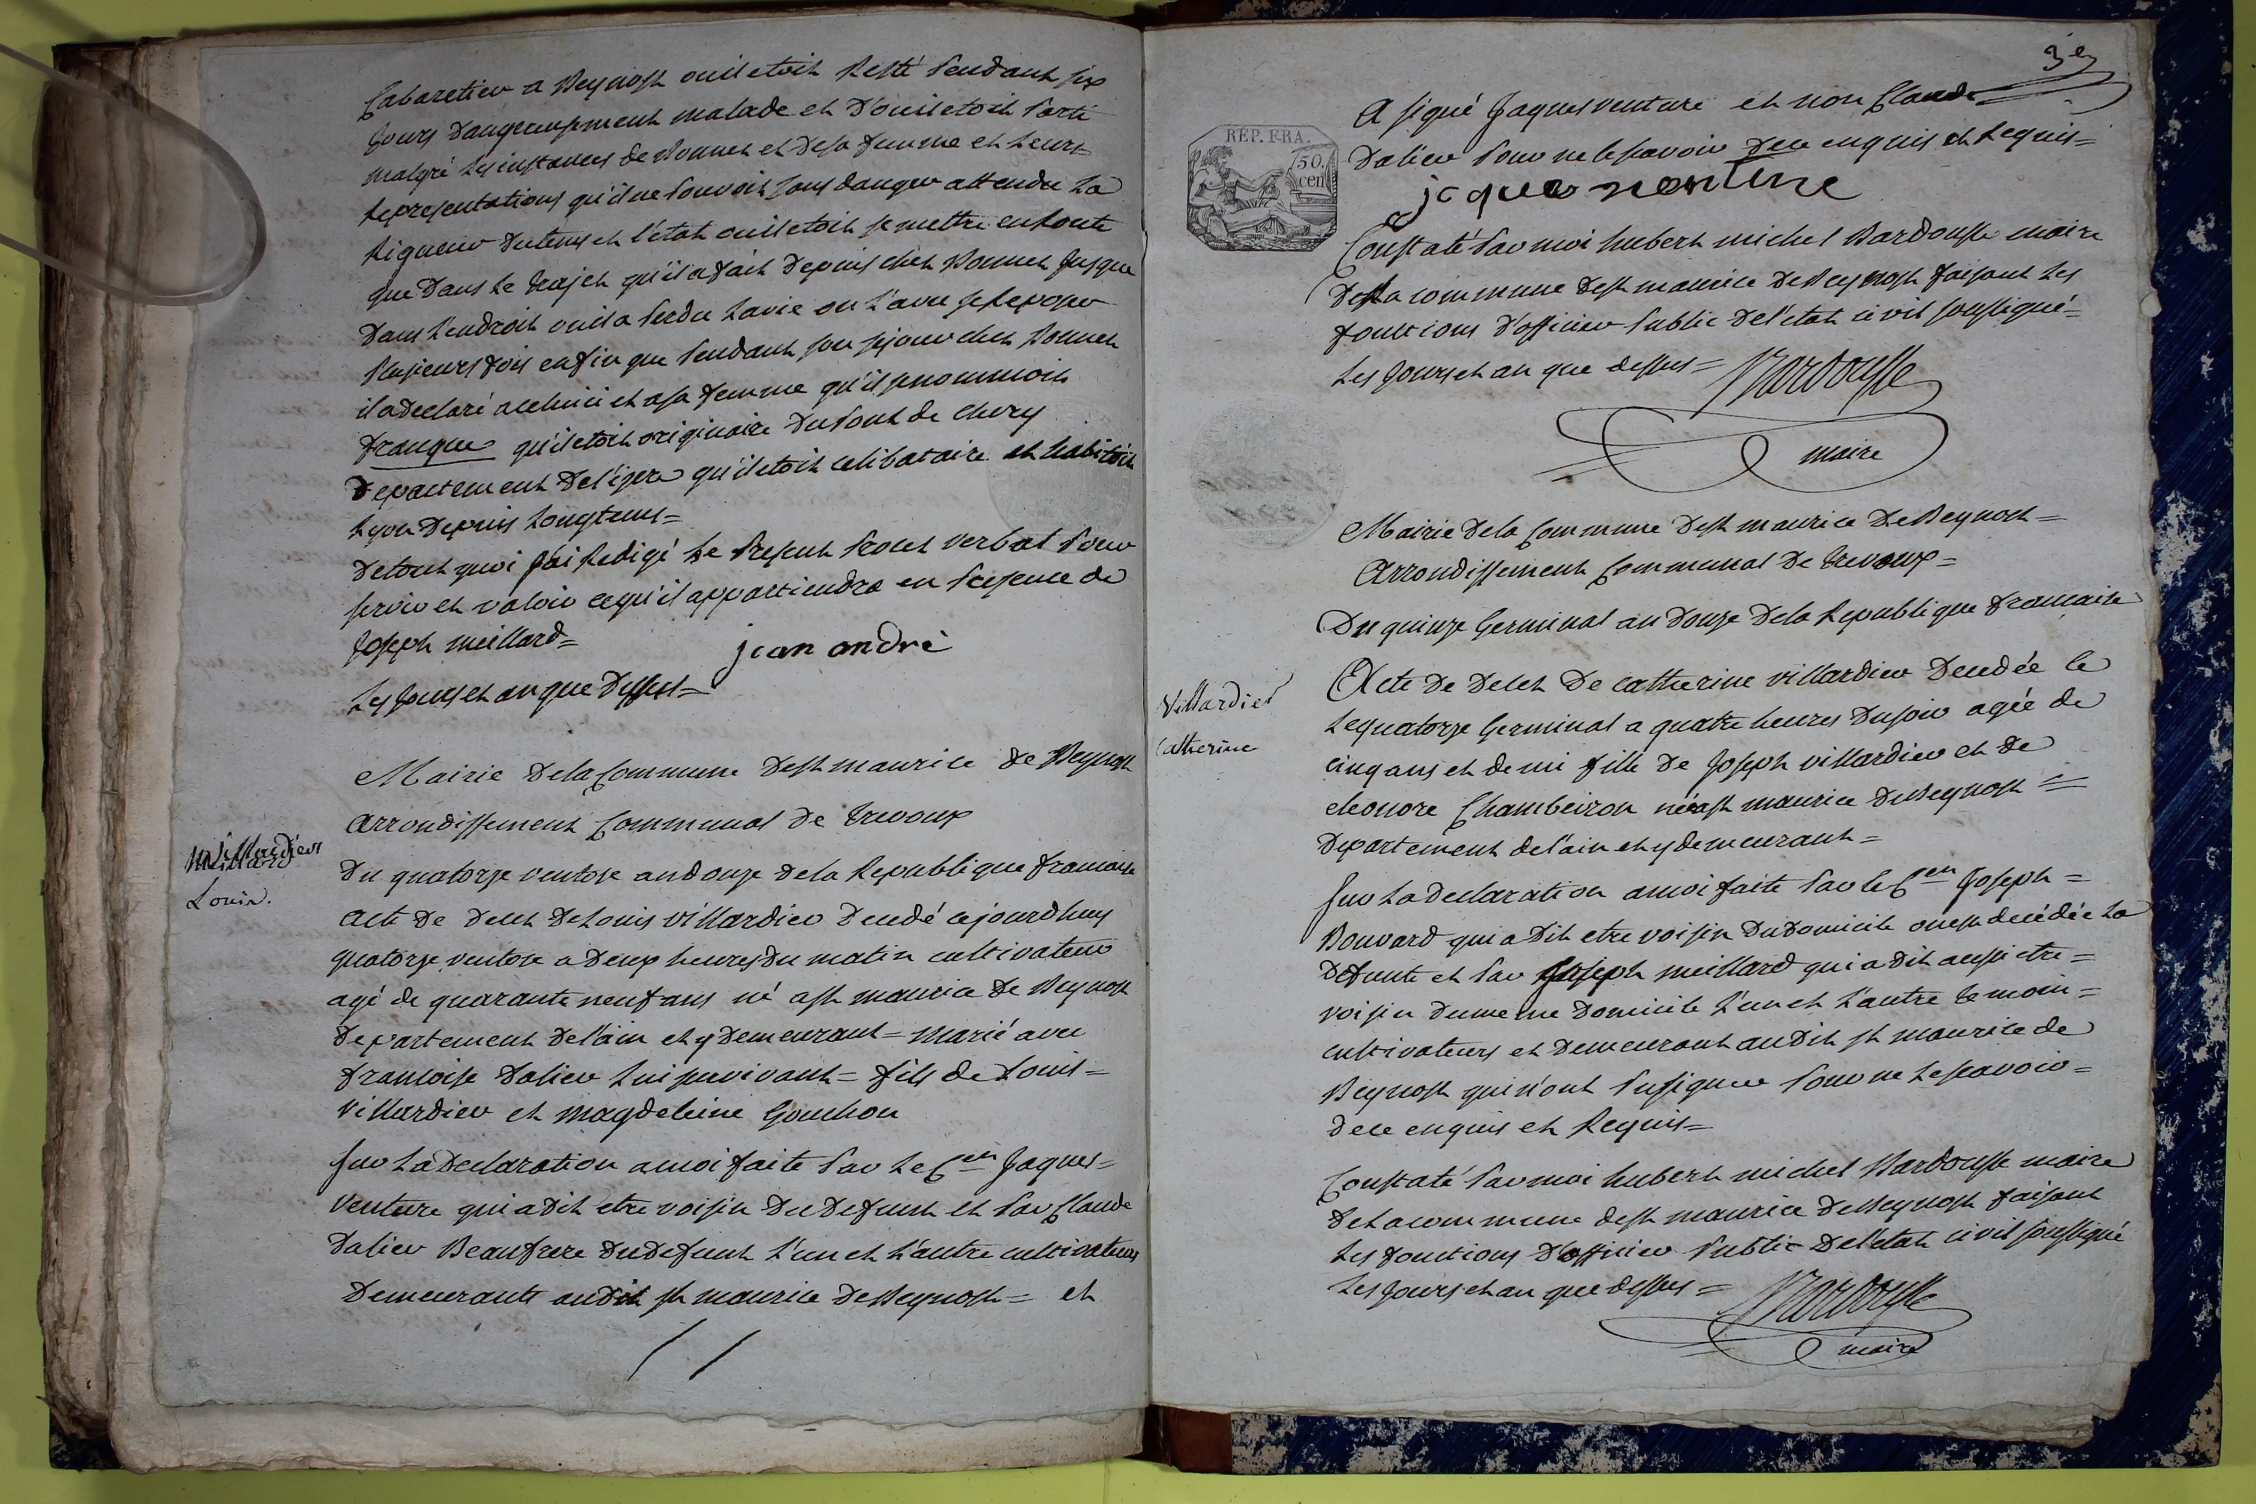 Cabaretier a Beynost ou il etoit Resté pendant six
jours dangereusement malade et d'ou il etoit sorti
malgré les instances de Bonnet et de sa femme et leurs
Representations qu'il ne pouvoit sans danger attendu la
Rigueur du tems et l'état ou il etoit se mettre en Route
que dans le trajet qu'il a fait depuis chez Bonnet jusque
dans l'endroit ou il a perdu la vie on l'a vu se Reposer
plusieurs fois enfin que pendant son sejour chez Bonnet
il a declaré a celui ci et a sa femme qu'il se nommoit
franque qu'il etoit originaire du pont de chery
departement de l'izere qu'il etoit celibataire et habitoit
Lyon depuis Longtems =
de tout quoi j'ai Redigé le present procet verbal pour
servir et valoir ce qu'il appartiendra en presence de
joseph meillard = jean andré
Les jours et an que dessus =
Mairie de la Commune de st maurice de Beynost
arrondissement Communal de trevoux
Villardier
Louis.
du quatorze ventose an douze de la Republique francaise
acte de decet de Louis villardier decedé ce jourdhuy
quatorze ventose a deux heures du matin cultivateur
agé de quarante neuf ans né a st maurice de Beynost
departement de l'ain et y demeurant = marié avec
francoise dalier lui survivant = fils de Louis =
villardier et magdeleine Gouchon
sur la declaration a moi faite par le Cen jaques =
venture qui a dit etre voisin du defunt et par Claude
dalier Beaufrere du defunt l'un et l'autre cultivateurs
demeurants audit st maurice de Beynost = et
3e
a signé jaques venture et non Claude
dalier pour ne le scavoir de ce enquis et Requis =
REP. FRA.
50.
cen
jaque venture
Constaté par moi hubert michel Bardousse maire
de la commune de st maurice de Beynost faisant les
fonctions d'officier public de l'etat civil soussigné =
les jours et an que dessus = Bardousse
maire
Mairie de la Commune de st maurice de Beynost =
Arrondissement Communal de trevoux =
Du quinze Germinal an douze de la Republique francaise
Villardier
Catherine
Acte de decet de catherine villardier decedée le
le quatorze Germinal a quatre heures du soir agée de
cinq ans et demi fille de joseph villardier et de
eleonore Chambeiron née a st maurice de Beynost =
departement de l'ain et y demeurant =
sur la declaration a moi faite par le Cen joseph =
Bouvard qui a dit etre voisin du domicile ou est decédée la
defunte et par joseph meillard qui a dit aussi etre =
voisin du meme domicile l'un et l'autre temoin =
cultivateurs et demeurant audit st maurice de
Beynost qui n'ont pu signer pour ne le scavoir =
de ce enquis et Requis =
Constaté par moi hubert michel Bardousse maire
de la commune de st maurice de Beynost faisant
les fonctions d'officier public de l'etat civil soussigné
les jours et an que dessus = Bardousse
maire